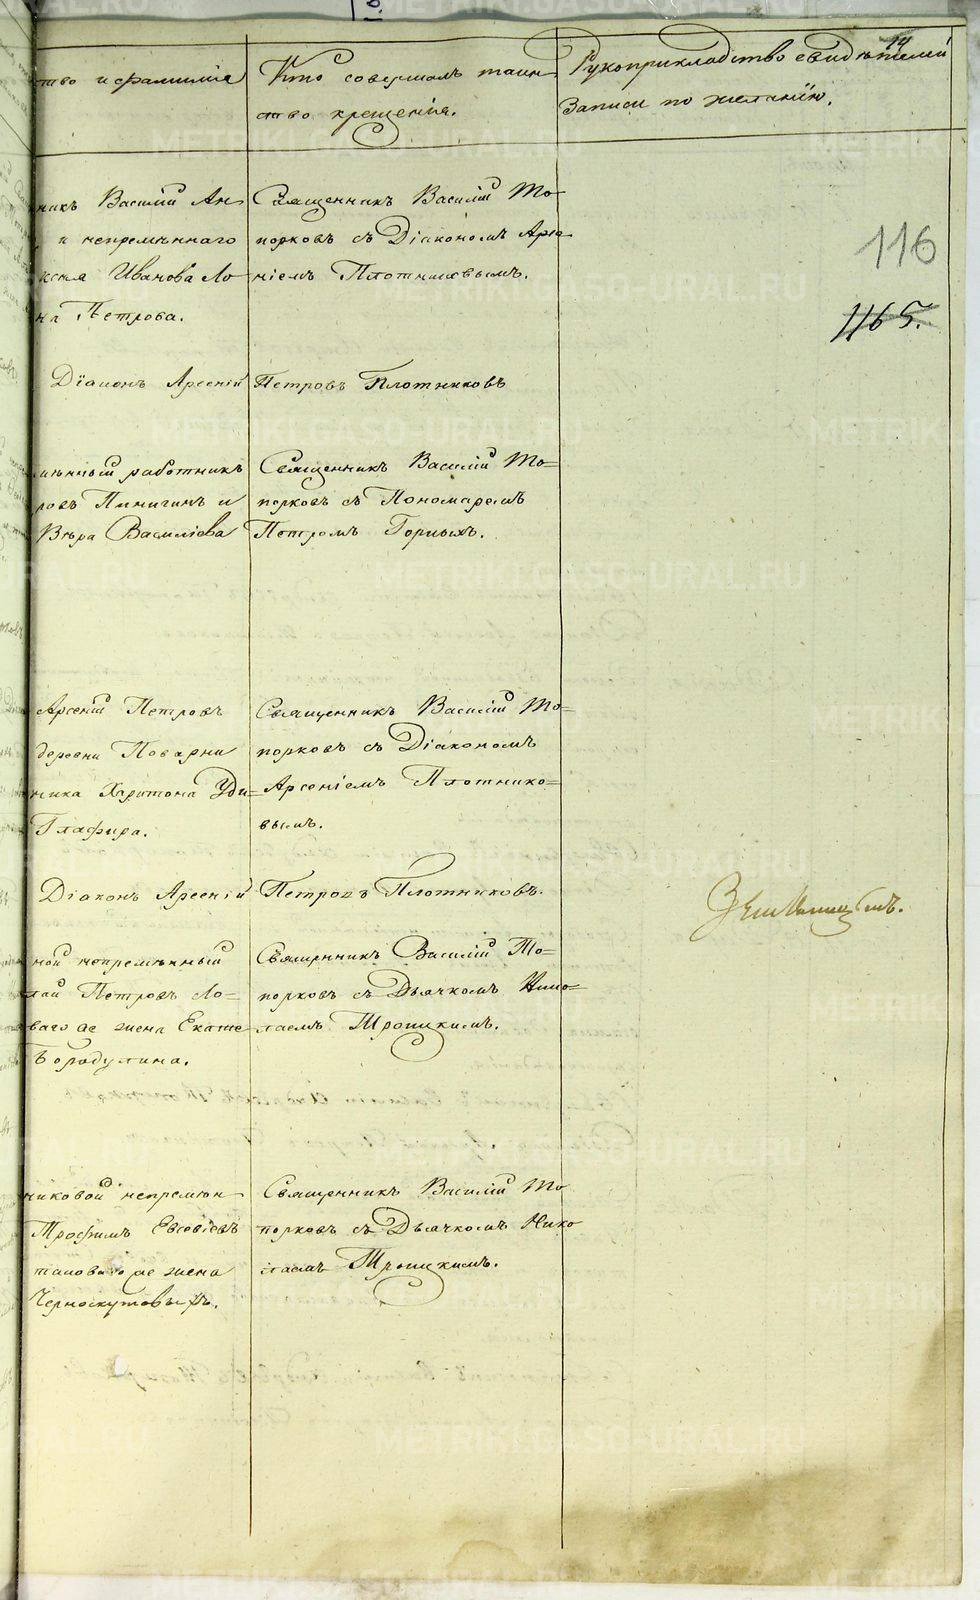 14
ство и фамиліе
Кто совершалъ таин
ство крещенія.
Рукоприкладство свидѣтелей
Записи по желанію.
116
1165.
никъ Василій Ан
и непремѣннаго
Иванова Ло
на Петрова.
Священникъ Василій То
порковъ съ Діакономъ Арсе
ніемъ Плотниковымъ.
Діаконъ Арсеній Петровъ Плотниковъ
мѣнный работникъ
ровъ Пинигинъ и
Вѣра Василіева
Священникъ Василій То=
порковъ съ Пономаремъ
Петромъ Горныхъ.
Арсеній Петровъ
деревни Поварни
ника Харитона Уди=
Глафира.
Священникъ Василій То=
порковъ съ Діакономъ
Арсеніемъ Плотнико=
вымъ.
Діаконъ Арсеній Петровъ Плотниковъ.
ной непремѣнный
лай Петровъ Ло=
ваго же жена Екате
Бородулина.
Священникъ Василій То=
порковъ съ Дьячкомъ Нико=
лаемъ Троицкимъ.
никовой непремѣн
Трофимъ Евсевіевъ
таковаго же жена
Черноскутовы.
Священникъ Василій То
порковъ съ Дьячкомъ Нико
лаемъ Троицкимъ.
METRIKI.GASO-URAL.RU